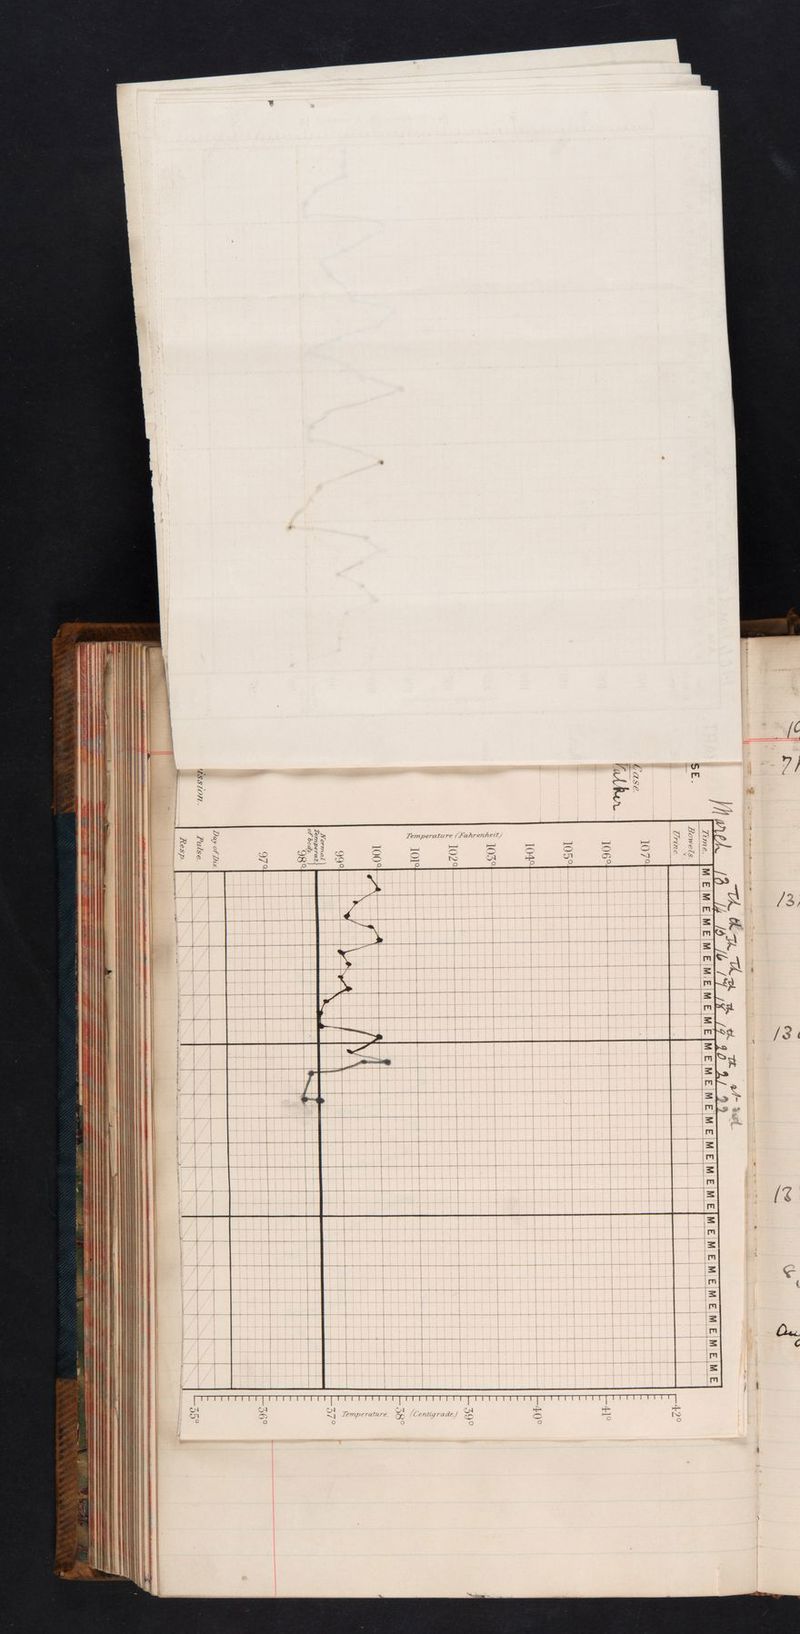 SE.
Case.
Walker
ission.
March 13th 14th 15th 16th 17th 18th 19th 20th 21st 22nd
Time.
M E M E M E M E M E M E M E M E M E M E M E M E M E M E M E M E M E M E M E M E M E
Bowels.
Urine.
Temperature (Fahrenheit)
107°
106°
105°
104°
103°
102°
101°
100°
99°
Normal
Temperat.
of body
98°
97°
Day of Dis.
Pulse.
Resp.
42°
41°
40°
39°
38°
37°
36°
35°
Temperature. (Centigrade.)
7
13
13
13